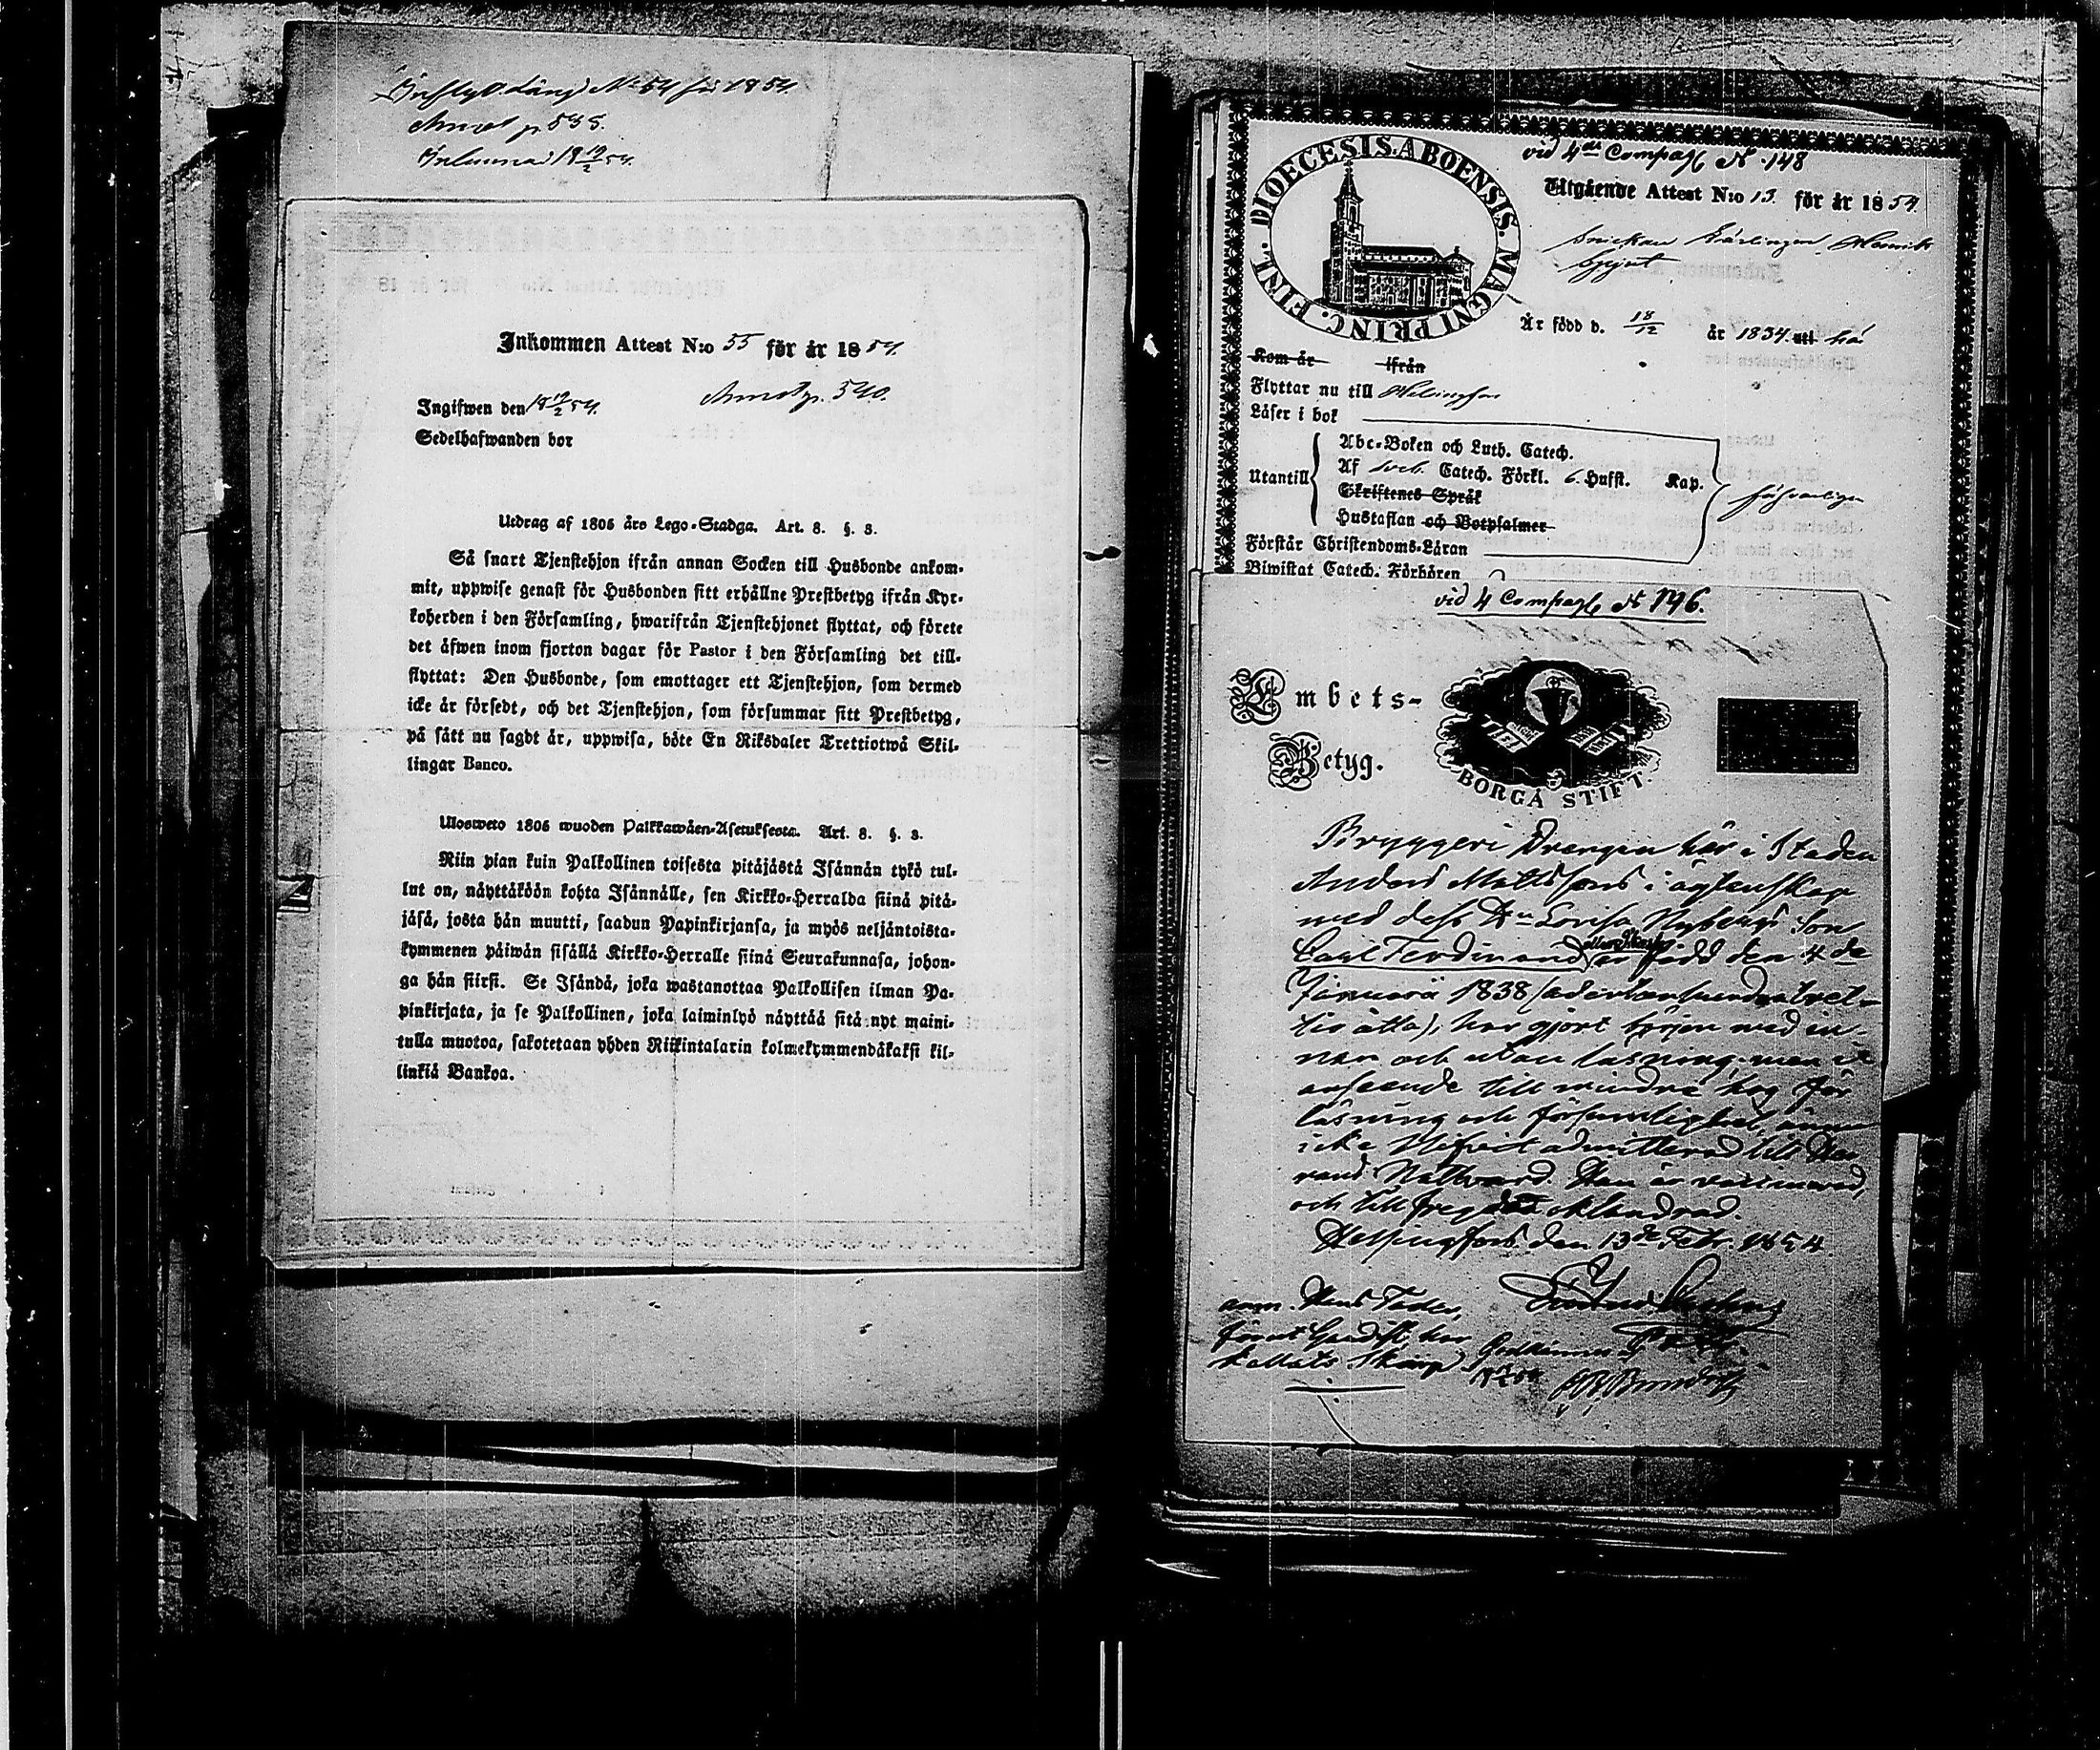 Inflytt. Läng. No 54 för 1854.
Annot p. 535.
Inlemnad 18 19/2 54.
Inkommen Attest N:o 55 för år 1854.
Ingifwen den 18 19/2 54. Annot p. 540.
Sedelhafwanden bor
Utdrag af 1805 års Lego-Stadga. Art. 8. §. 3.
Så snart Tjenstehjon ifrån annan Socken till Husbonde ankom-
mit, uppwise genast för Husbonden sitt erhållne Prestbetyg ifrån Kyr-
koherden i den Församling, hwarifrån Tjenstehjonet flyttat, och förete
det äfwen inom fjorton dagar för Pastor i den Församling det till-
flyttat: Den Husbonde, som emottager ett Tjenstehjon, som dermed
icke är försedt, och det Tjenstehjon, som försummar sitt Prestbetyg,
på sätt nu sagdt är, uppwisa, böte En Riksdaler Trettiotwå Skil-
lingar Banco.
Ulosweto 1805 wuoden Palkkawäen-Asetuksesta. Art. 8. §. 3.
Niin pian kuin Palkollinen toisesta pitäjästä Isännän tykö tul-
lut on, näyttäköön kohta Isännälle, sen Kirkko-Herralda siinä pitä-
jäsä, josta hän muutti, saadun Papinkirjansa, ja myös neljäntoista-
kymmenen päiwän sisällä Kirkko-Herralle siinä Seurakunnasa, johon-
ga hän siirsi. Se Isändä, joka wastanottaa Palkollisen ilman Pa-
pinkirjata, ja se Palkollinen, joka laiminlyö näyttää sitä nyt maini-
tulla muotoa, sakotetaan yhden Riikintalarin kolmekymmendäkaksi kil-
linkiä Bankoa.
vid 4de Compag No 148
DIOECESIS. ABOENSIS. MAGNI PRINC. FINL.
Utgående Attest N:o 13 för år 1854.
Snickare Lärlingen Henrik
Är född d. 18/12 år 1834. uti
Kom år ifrån
Flyttar nu till Helsingfors
Läser i bok
Utantill
Abc-Boken och Luth. Catech.
Af Catech. Förkl. 6. Hufst. Kap.
Skriftenes Språk
Hustaflan och Botpsalmer
försvarligen
Förstår Christendoms-Läran
Biwistat Catech. Förhören
vid 4 Compag No 146.
Embets-
Betyg.
BORGÅ STIFT
Bryggeri Drengen här i Staden
Anders Mattssons i ägtenskap
med dess Hu Lovisa Nybergs Son
Carl Ferdinand är född den 4de
Januari 1838 (adertonhundratret-
tio åtta), har gjort början med in-
nan och utan läsning, men i
anseende till mindre håg för
läsning och försumlighet ännu
icke blifvit admitterad till Her-
rans Nattvard. Han är vaccinerad,
och till frejden oklandrad.
Helsingfors den 13de Febr. 1854.
anm. Hans Fader,
förut
Mats Skarp
Godkännes